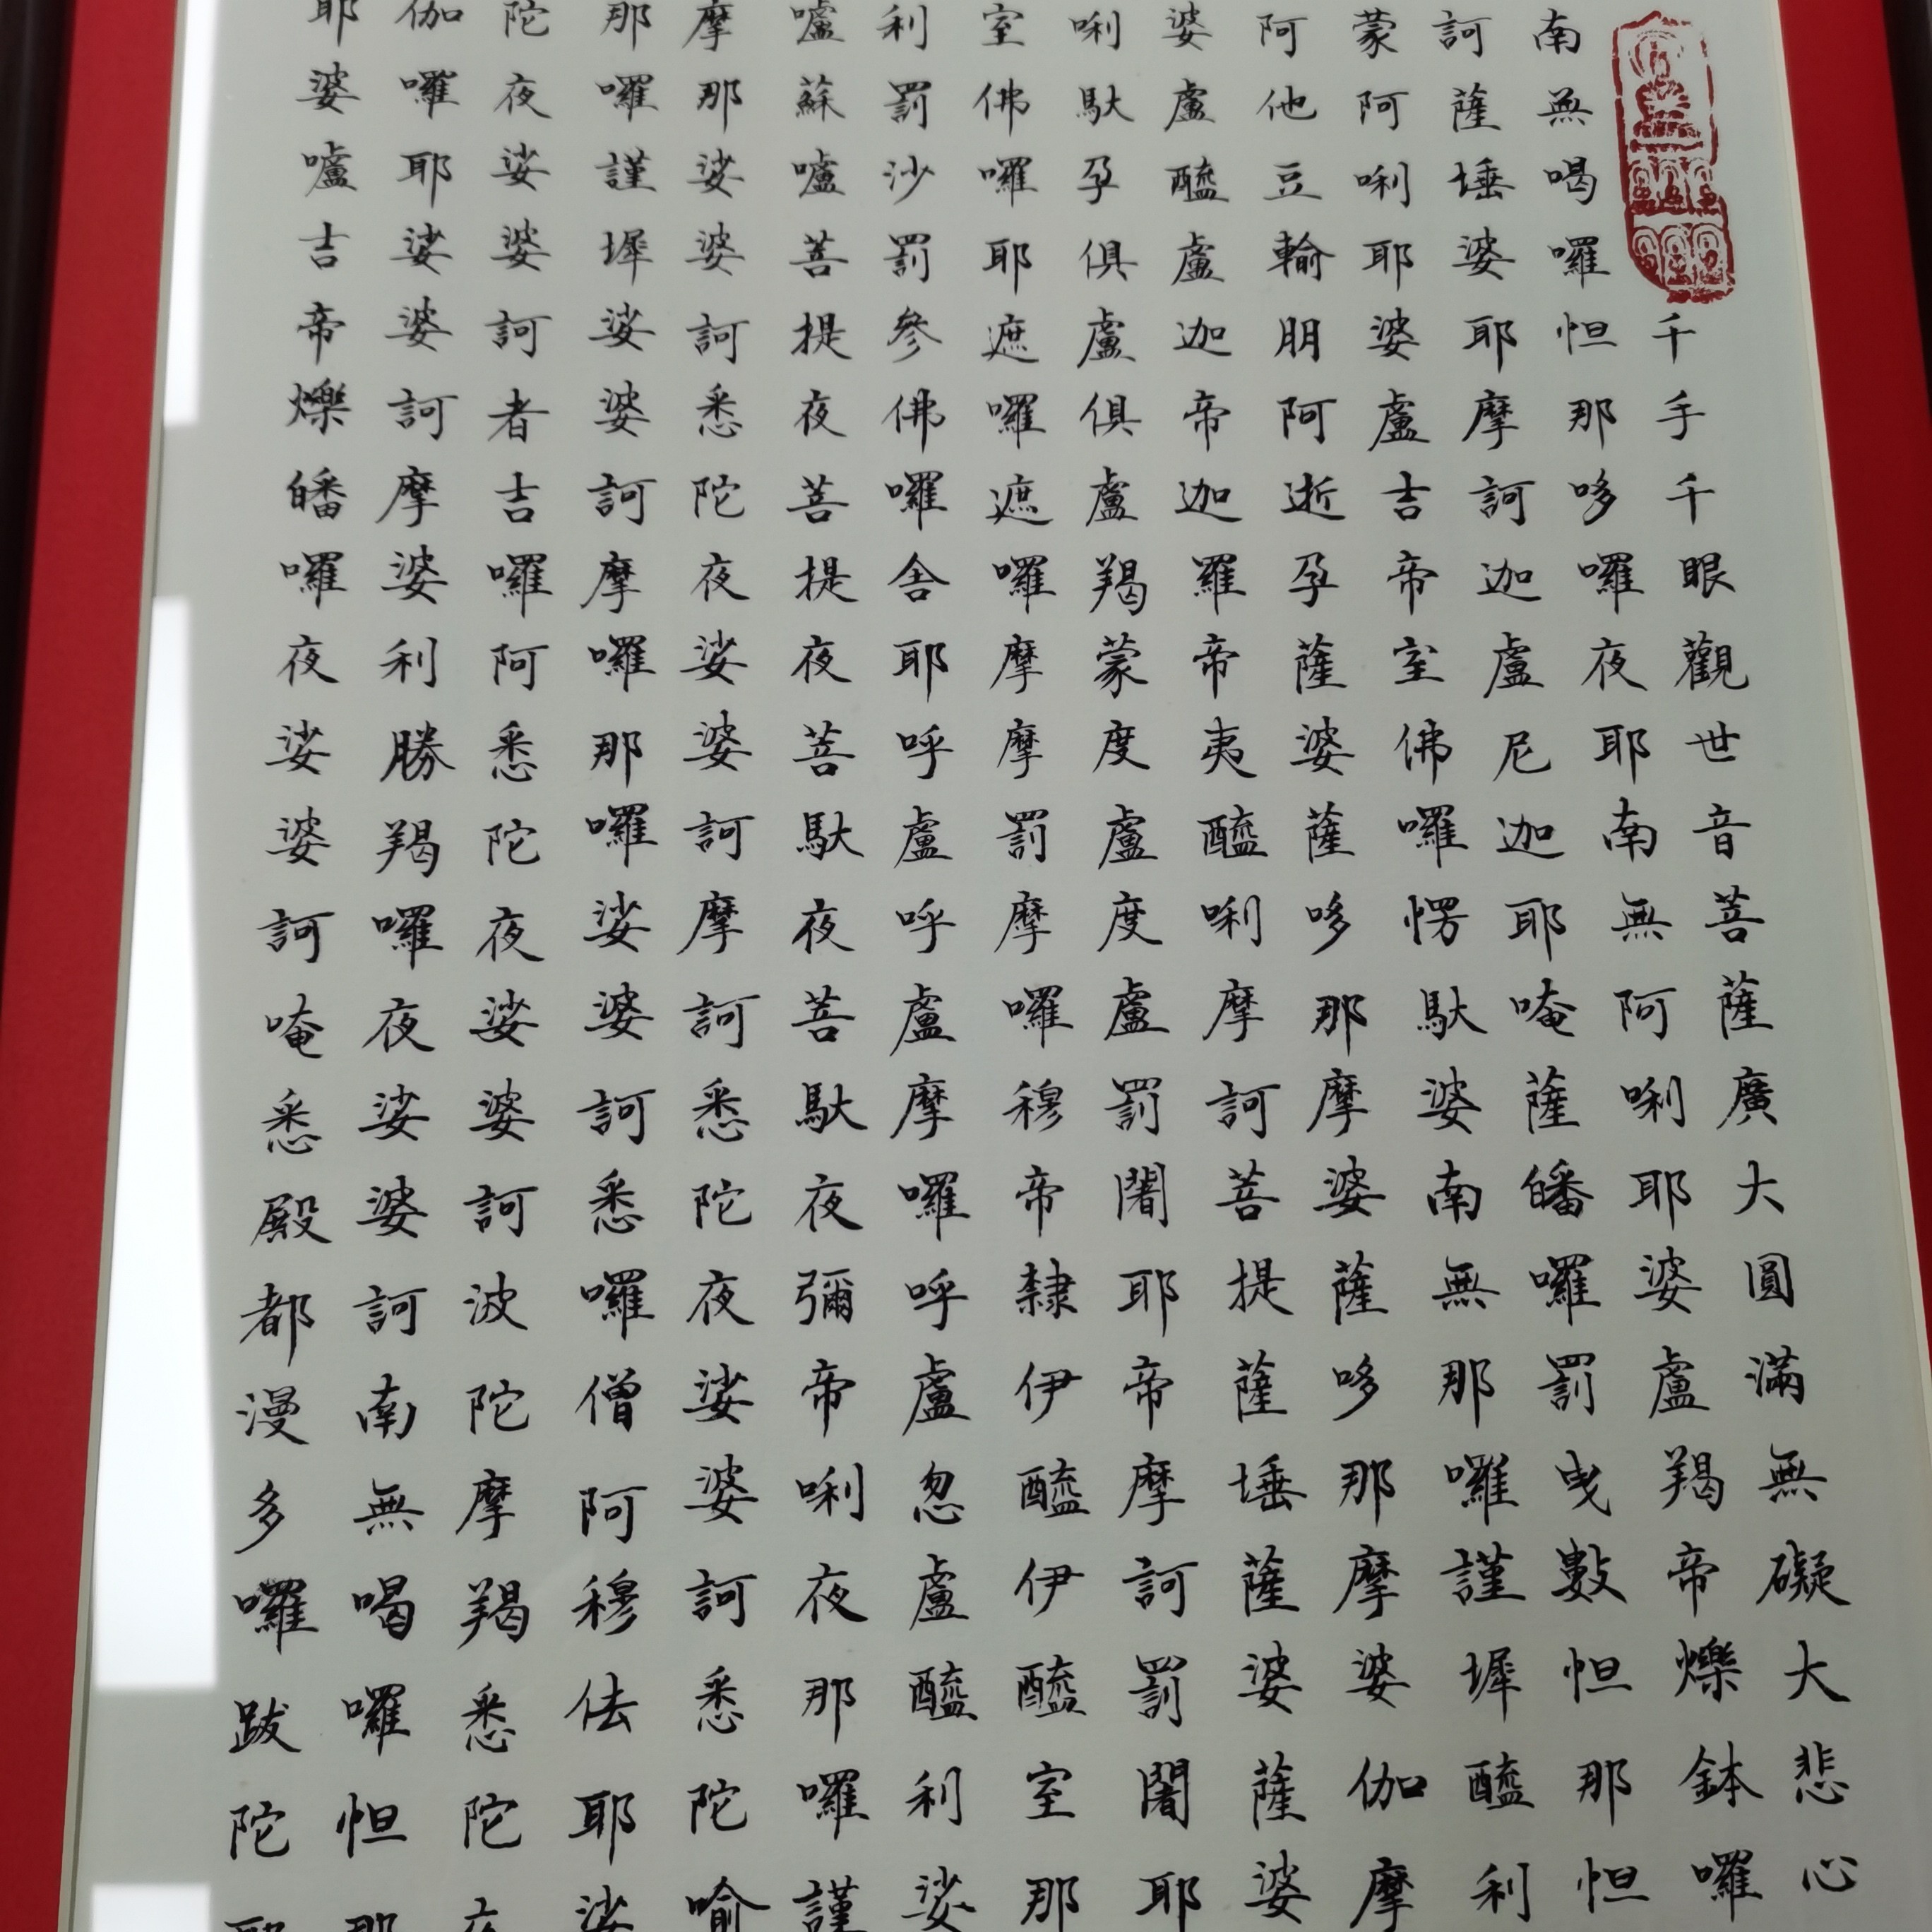 千手千眼觀世音菩薩廣大圓滿無礙大悲心
南無喝囉怛那哆囉夜耶南無阿唎耶婆盧羯帝爍鉢囉
訶薩埵婆耶摩訶迦盧尼迦耶唵薩皤囉罰曳數怛那怛
蒙阿唎耶婆盧吉帝室佛囉愣馱婆南無那囉謹墀醯利
阿他豆輸朋阿逝孕薩婆薩哆那摩婆薩哆那摩婆伽摩
婆盧醯盧迦帝迦羅帝夷醯唎摩訶菩提薩埵薩婆薩婆
唎馱孕俱盧俱盧羯蒙度盧度盧罰闍耶帝摩訶罰闍耶
室佛囉耶遮囉遮囉摩摩罰摩囉穆帝隸伊醯伊醯室那
利罰沙罰參佛囉舍耶呼盧呼盧摩囉呼盧忽盧醯利娑
嚧蘇嚧菩提夜菩提夜菩馱夜菩馱夜彌帝唎夜那囉謹
摩那娑婆訶悉陀夜娑婆訶摩訶悉陀夜娑婆訶悉陀喻
那囉謹墀娑婆訶摩囉那囉娑婆訶悉囉僧阿穆佉耶娑
陀夜娑婆訶者吉囉阿悉陀夜娑婆訶波陀摩羯悉陀夜
伽囉耶娑婆訶摩婆利勝羯囉夜娑婆訶南無喝囉怛那
耶婆嚧吉帝爍皤囉夜娑婆訶唵悉殿都漫多囉跋陀耶